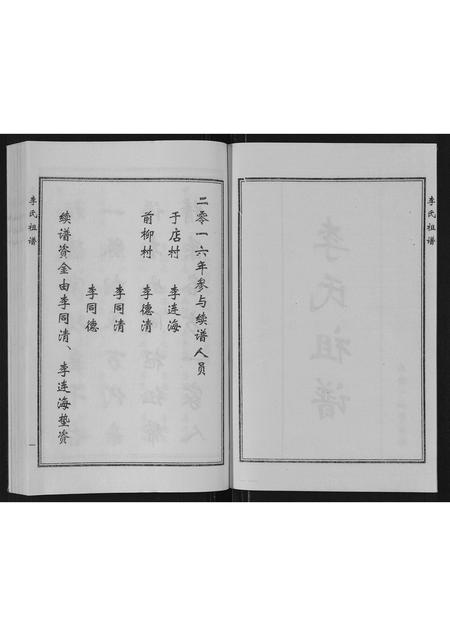 李氏祖谱
李氏祖谱
二零一六年参与续谱人员
于店村 李连海
前柳村 李德清
李同清
李同德
续谱资金由李同清、李连海垫资
李氏祖谱
一